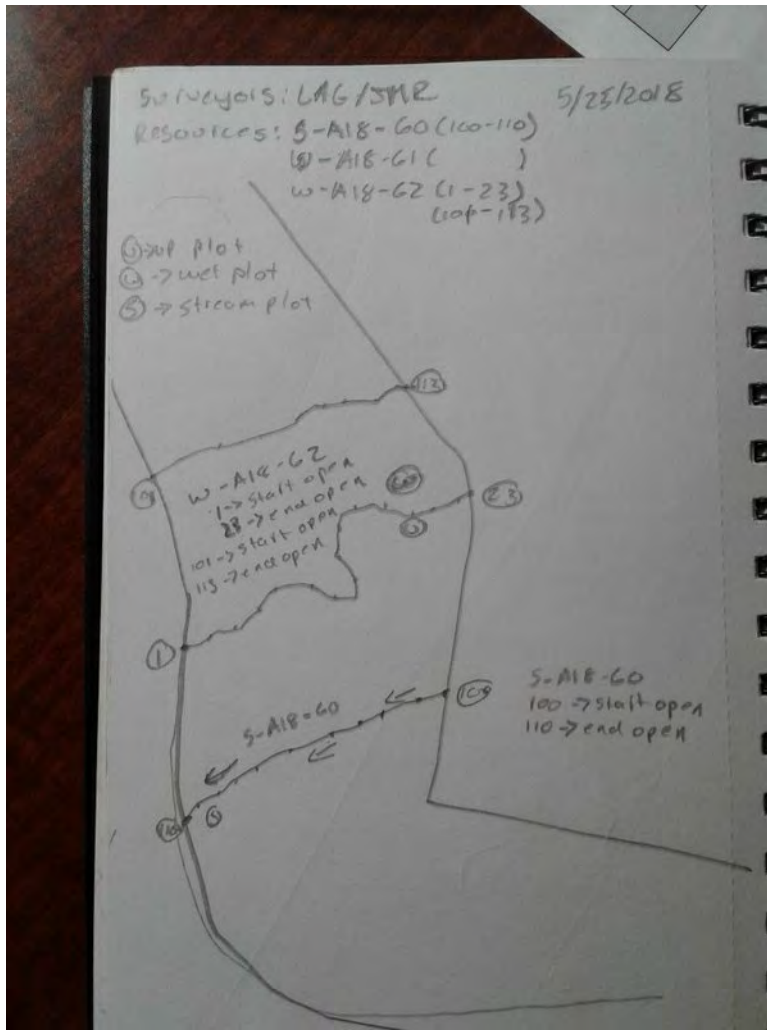 Surveyors: LAG/JMR 5/25/2018
Resources: S-A18-60 (100-110)
W-A18-61 ( )
W-A18-62 (1-23)
(101-113)
up plot
W -> wet plot
S -> stream plot
113
W-A18-62
1 -> start open
23 -> end open
101 -> start open
113 -> end open
23
1
S-A18-60
100
S-A18-60
100 -> start open
110 -> end open
110
S